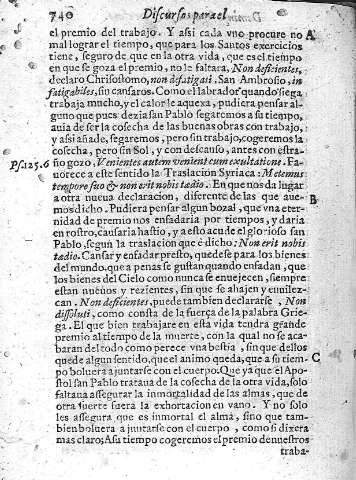 740 Discursos para el
el premio del trabajo. Y assi cada vno procure no
mal lograr el tiempo, que para los Santos exercicios
tiene, seguro de que en la otra vida, que es el tiempo
en que se goza el premio, no le faltara, Non deficientes,
declaro Chrisostomo, non defatigati. San Ambrosio, in
fatigabiles, sin cansaros. Como el labrador quando siega
trabaja mucho, y el calor le aquexa, pudiera pensar al-
guno que pues dezia san Pablo segaremos a su tiempo,
auia de ser la cosecha de las buenas obras con trabajo;
y assi añade, segaremos, pero sin trabajo, cogeremos la
cosecha, pero sin Sol, y con descanso, antes con estra-
ño gozo, Venientes autem venient cum exultatione. Fa-
uorece a este sentido la Traslacion Syriaca: Metemus
tempore suo & non erit nobis tædio. En que nos da lugar
a otra nueua declaracion, diferente de las que aue-
mos dicho. Pudiera pensar algun bozal, que vna eter-
nidad de premio nos enfadaria por tiempos, y daria
en rostro, causaria hastio, y a esto acude el glorioso san
Pablo, segun la traslacion que è dicho: Non erit nobis
tædio. Cansar y enfadar presto, quede se para los bienes
del mundo, que a penas se gustan quando enfadan, que
los bienes del Cielo como nunca se enuejecen, siempre
estan nueuos y rezientes, sin que se ahajen y enuilez-
can. Non deficientes, puede tambien declararse, Non
dissoluti, como consta de la fuerça de la palabra Grie-
ga. El que bien trabajare en esta vida tendra grande
premio al tiempo de la muerte, con la qual no se aca-
baran del todo como perece vna bestia, sin que dellos
quede algun sentido, que el animo queda, que a su tiem-
po boluera a juntarse con el cuerpo. Que ya que el Apo-
stol san Pablo trataua de la cosecha de la otra vida, solo
faltaua assegurar la inmortalidad de las almas, que de
otra suerte fuera la exhortacion en vano. Y no solo
les assegura que es inmortal el alma, sino que tam-
bien boluera a juntarse con el cuerpo, como si dixera
mas claro; A su tiempo cogeremos el premio de nuestros
traba-
A
B
C
Ps. 125. 6